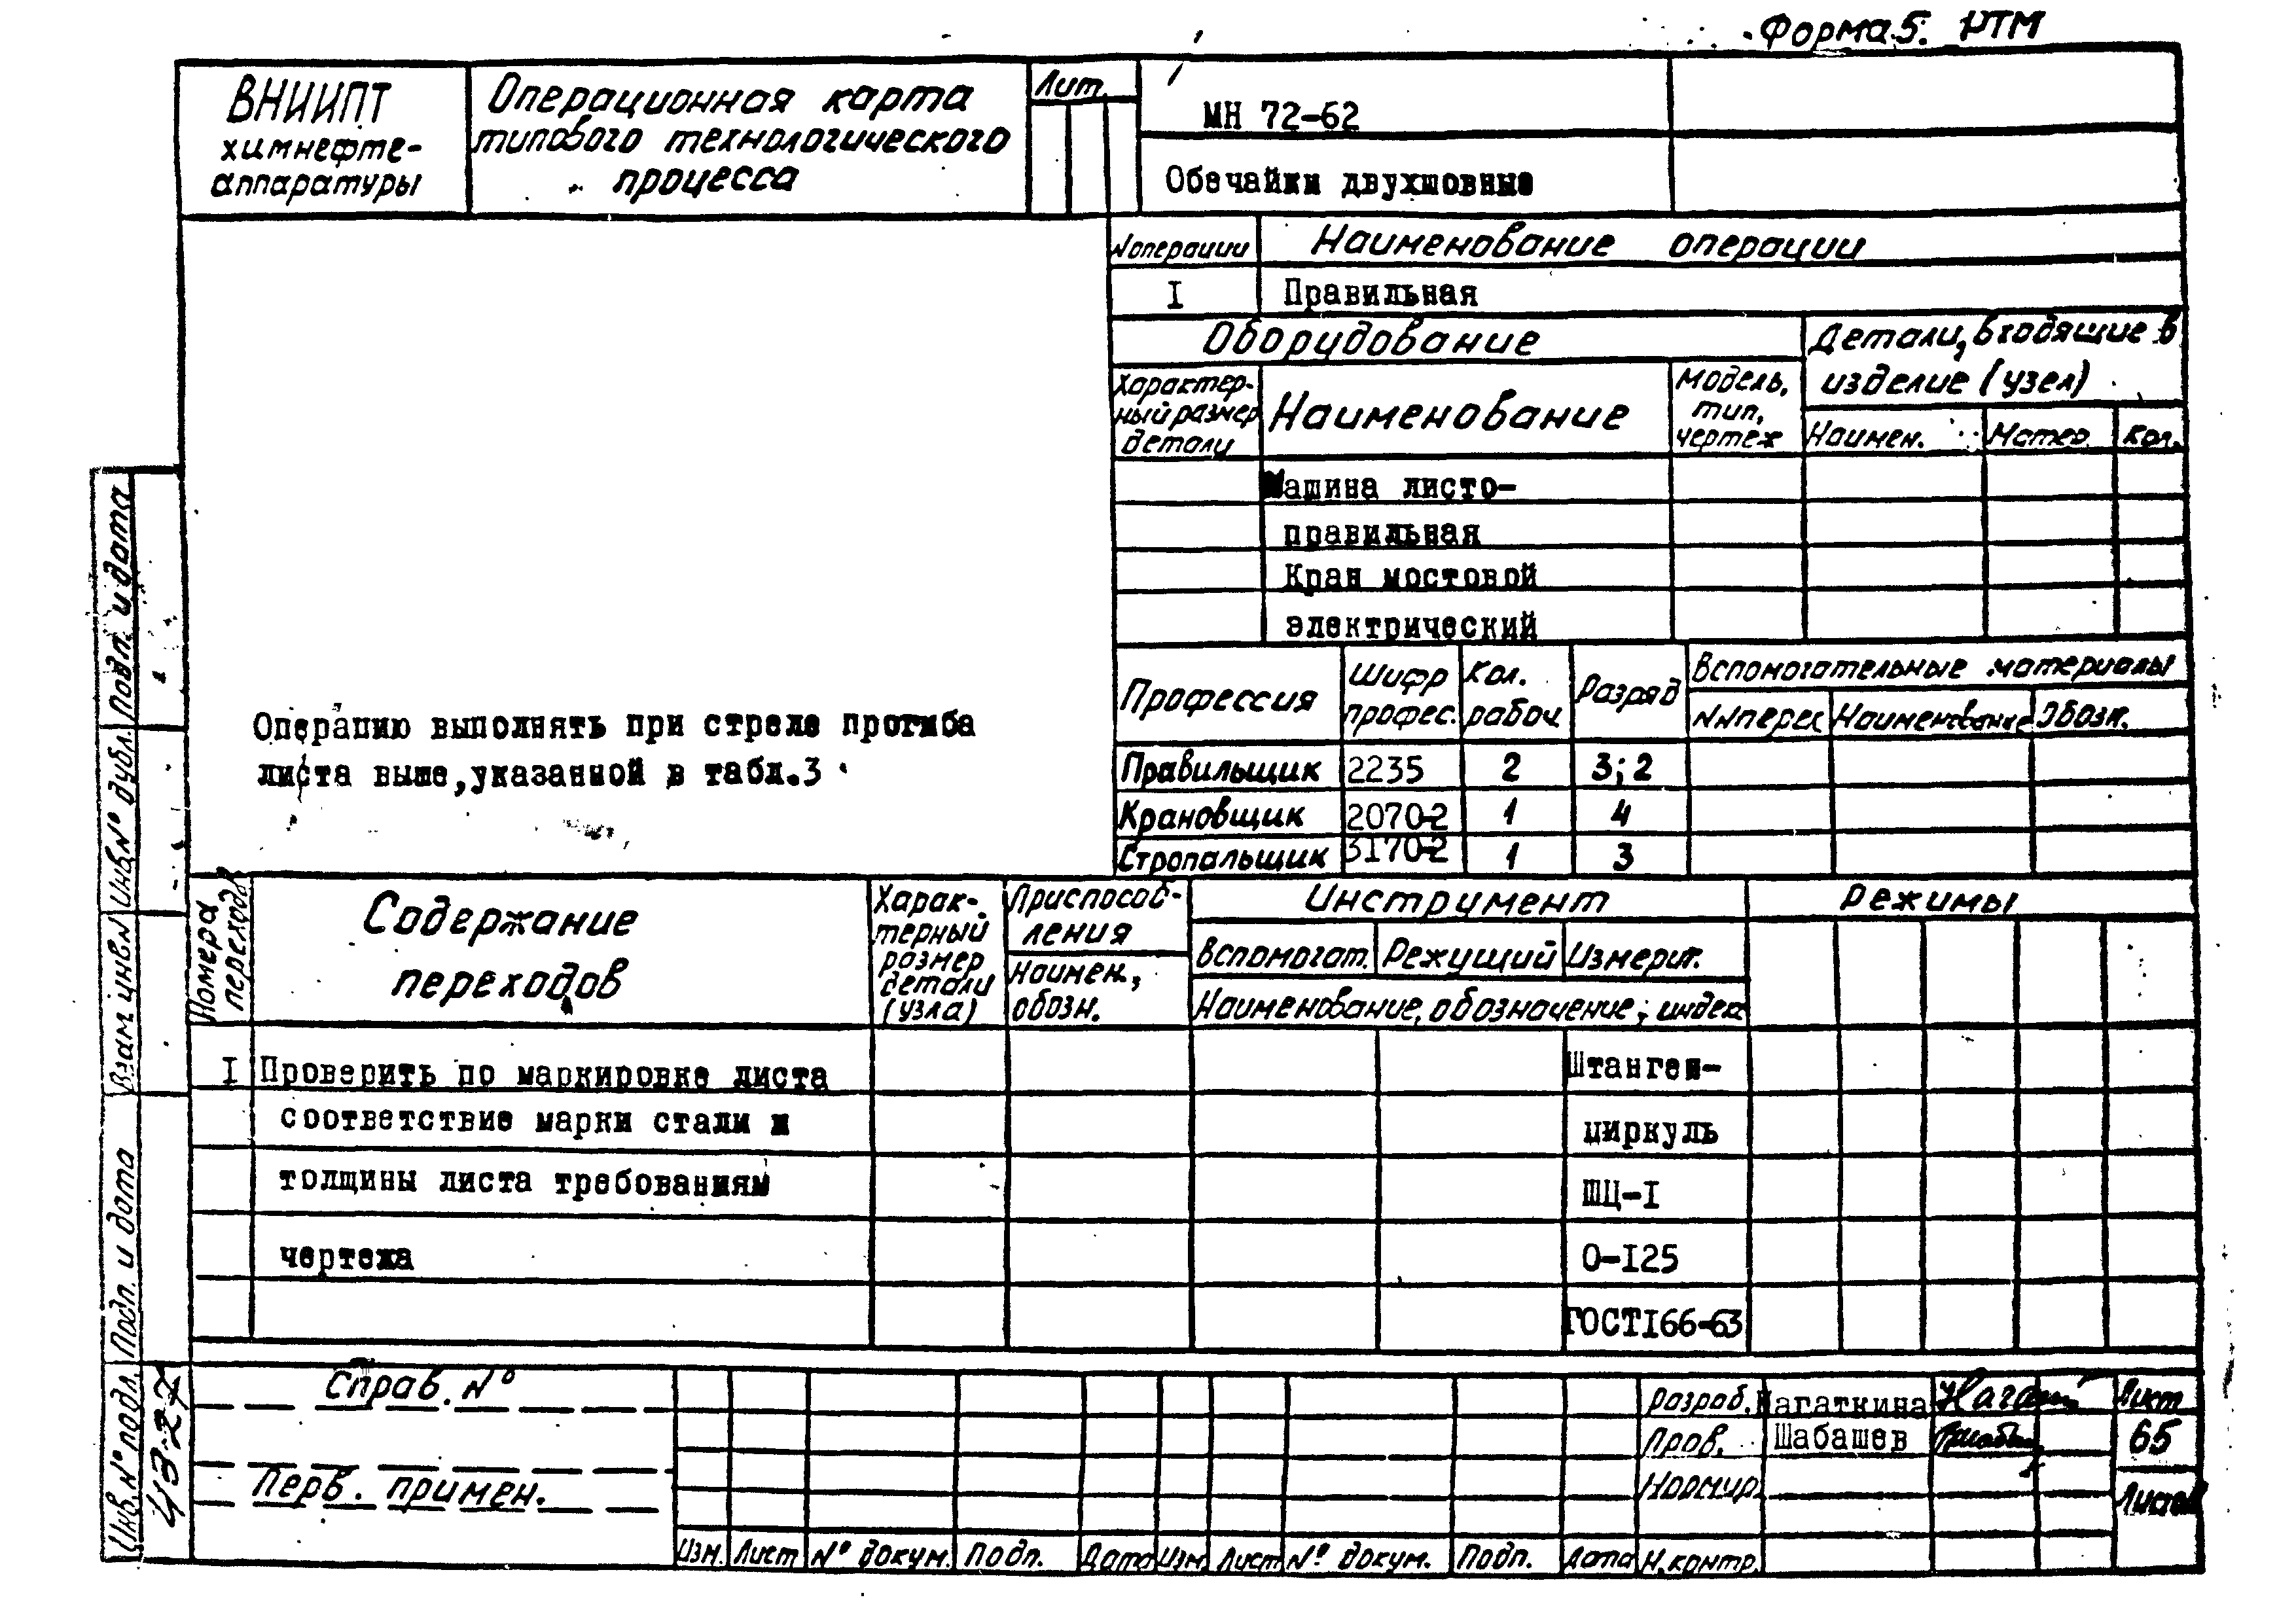 Форма 5. РТМ
ВНИИПТ
химнефте-
аппаратуры
Операционная карта
типового технологического
процесса
Лит.
МН 72-62
Обечайки двухшовные
№операции
Наименование операции
I
Правильная
Оборудование
Детали, входящие в
изделие (узел)
Характер-
ный размер
детали
Наименование
Модель,
тип,
чертеж
Наимен.
Матер.
Кол.
Машина листо-
правильная
Кран мостовой
электрический
Профессия
Шифр
профес.
Кол.
рабоч
Разряд
Вспомогательные материалы
NNперех
Наименование
Обозн.
Правильщик 2235 2 3; 2
Крановщик 2070-2 1 4
Стропальщик 3170-2 1 3
Операцию выполнять при стреле прогиба
листа выше, указанной в табл.3
Номера
переходов
Содержание
переходов
Харак-
терный
размер
детали
(узла)
Приспособ-
ления
Наимен.,
обозн.
Инструмент
Вспомогат.
Режущий
Измерит.
Наименование, обозначение, индекс
Режимы
I Проверить по маркировке листа
соответствие марки стали и
толщины листа требованиям
чертежа
Штанген-
циркуль
ШЦ-I
0-I25
ГОСТI66-63
Подп. и дата
Инв.№ дубл.
Взам инв.№
Подп. и дата
Инв.№ подл.
4327
Справ. №
Перв. примен.
Изм. Лист № докум. Подп. Дата Изм. Лист № докум. Подп. Дата
Разраб. Нагаткина
Пров. Шабашев
Нормир.
Н.контр.
Лист
65
Листов